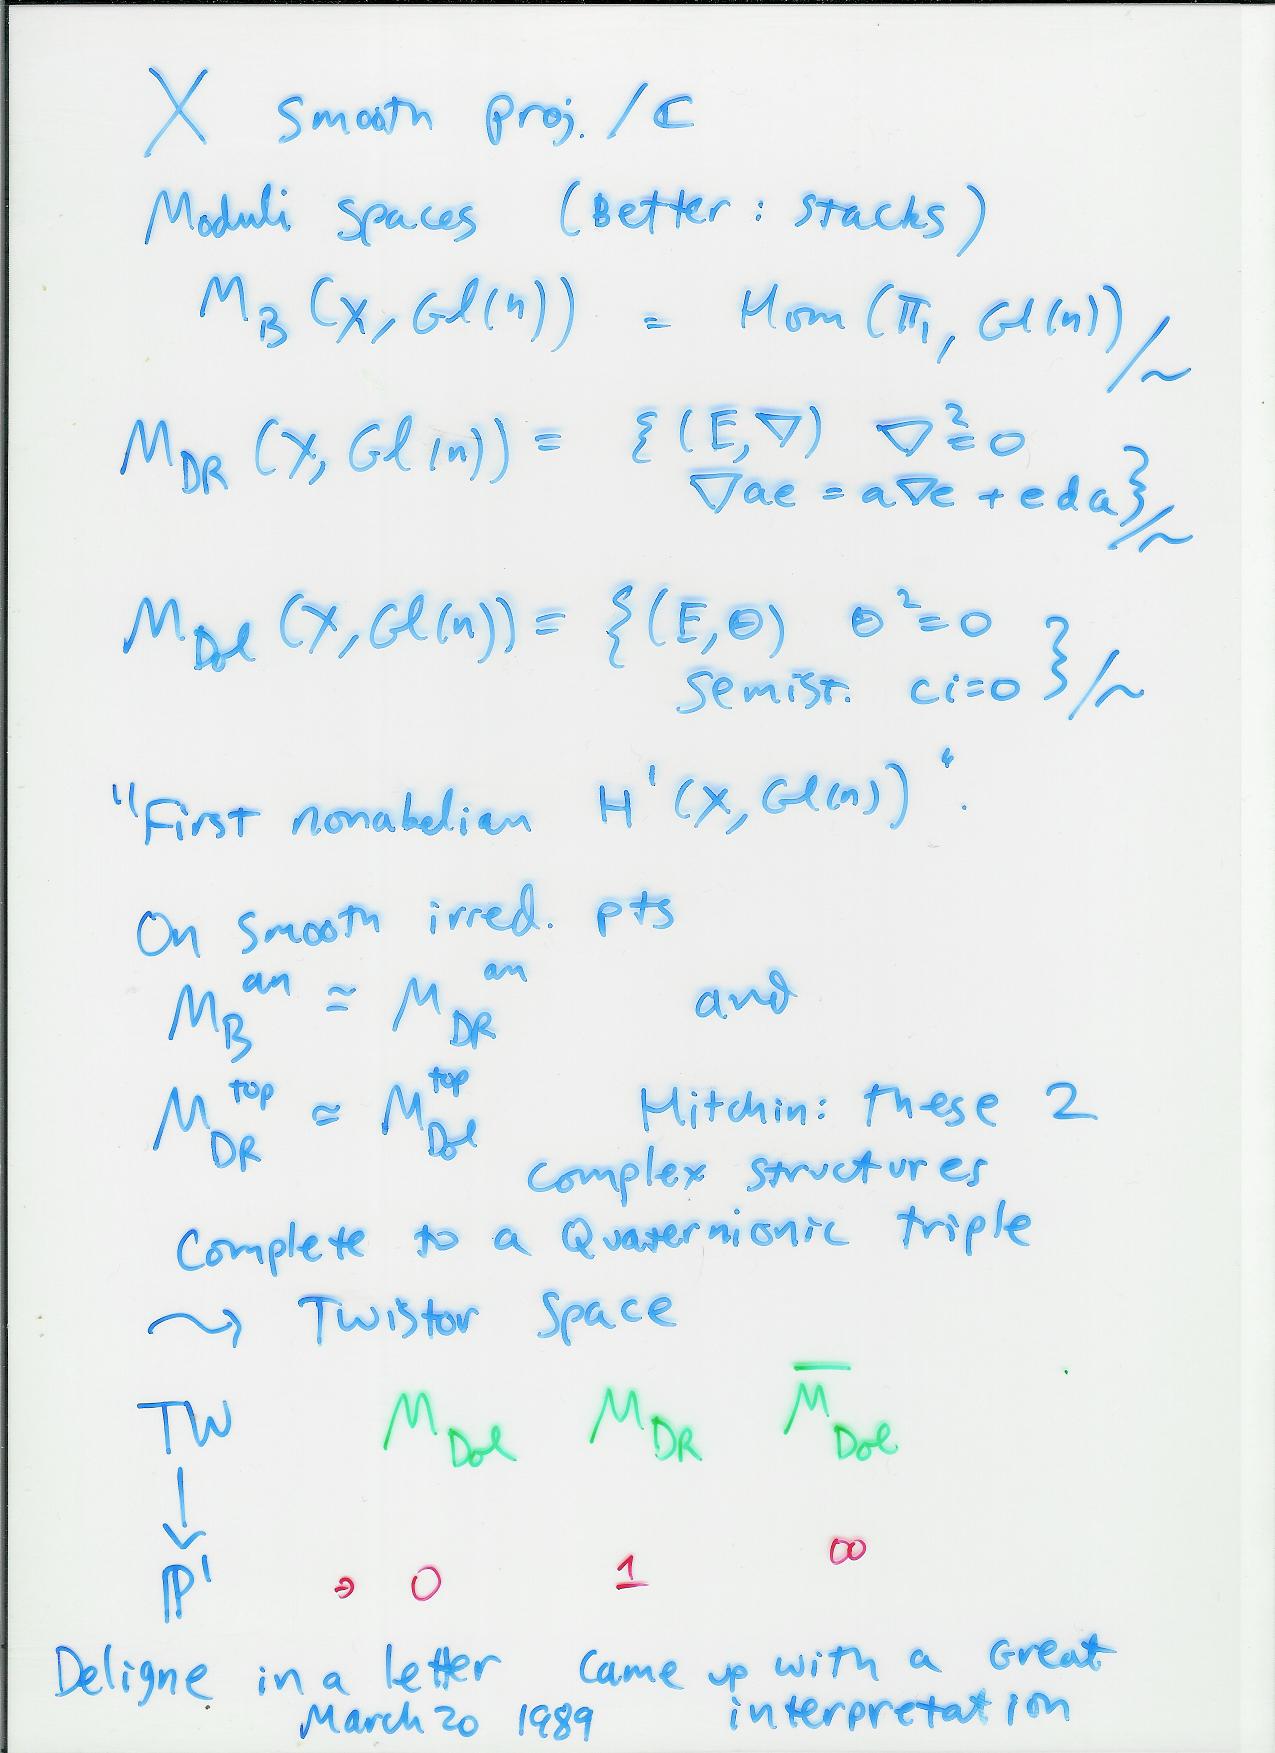 X smooth proj. / C
Moduli spaces (Better: stacks)
M_B (X, Gl(n)) = Hom (π₁, Gl(n)) /~
M_DR (X, Gl(n)) = { (E, ∇) ∇² = 0
∇ae = a∇e + e da } /~
M_Dol (X, Gl(n)) = { (E, θ) θ² = 0
semist. ci=0 } /~
"First nonabelian H¹ (X, Gl(n))".
On smooth irred. pts
M_B^an ≃ M_DR^an and
M_DR^top ≃ M_Dol^top Hitchin: these 2
complex structures
Complete to a Quaternionic triple
⤳ Twistor Space
TW M_Dol M_DR M̅_Dol
↓
P¹ ∋ 0 1 ∞
Deligne in a letter came up with a Great
March 20 1989 interpretation